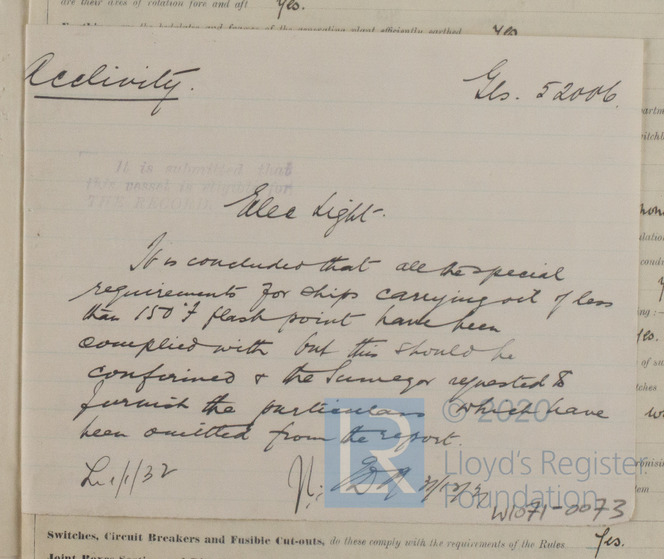 are their axes of rotation fore and aft Yes.
efficiently earthed Yes
Acclivity.
Gls. 52006.
It is submitted that
this vessel is eligible for
THE RECORD
Elec Light.
It is concluded that all the special
requirements for ships carrying oil of less
than 150°F flash point have been
complied with but this should be
confirmed & the Surveyor requested to
furnish the particulars which have
been omitted from the report.
1/1/32
31/12/3
© 2020
LR
Lloyd's Register
Foundation
W1071-0073
Switches, Circuit Breakers and Fusible Cut-outs, do these comply with the requirements of the Rules Yes.